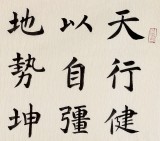 天行健
以自彊
地勢坤